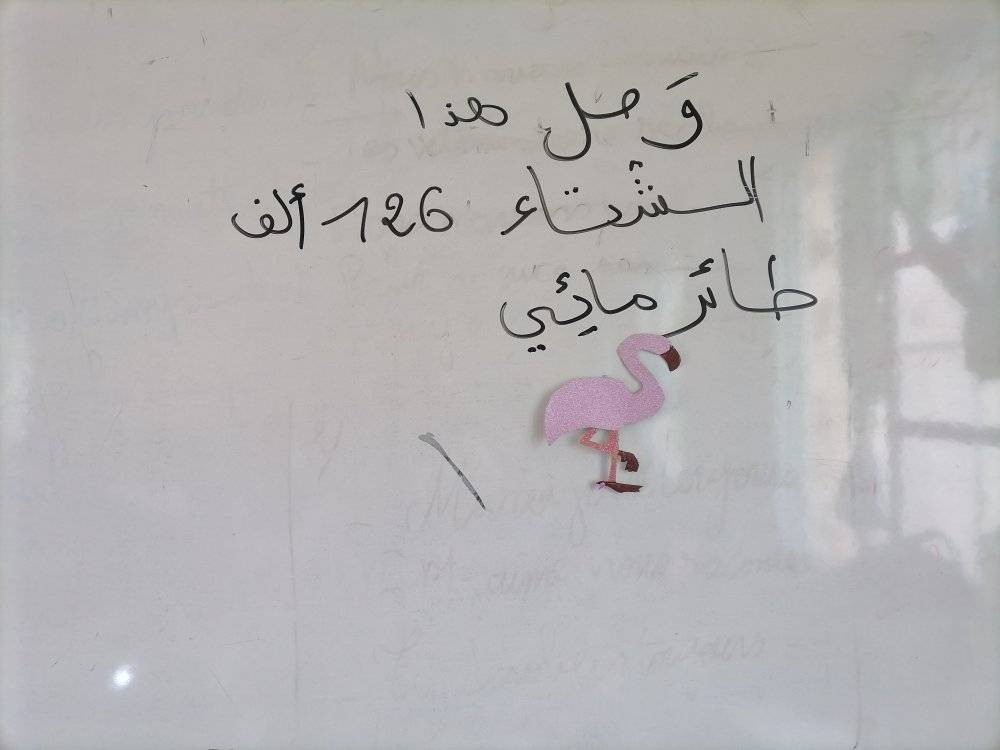 وَصل هذا
الشتاء 126 ألف
طائر مائي